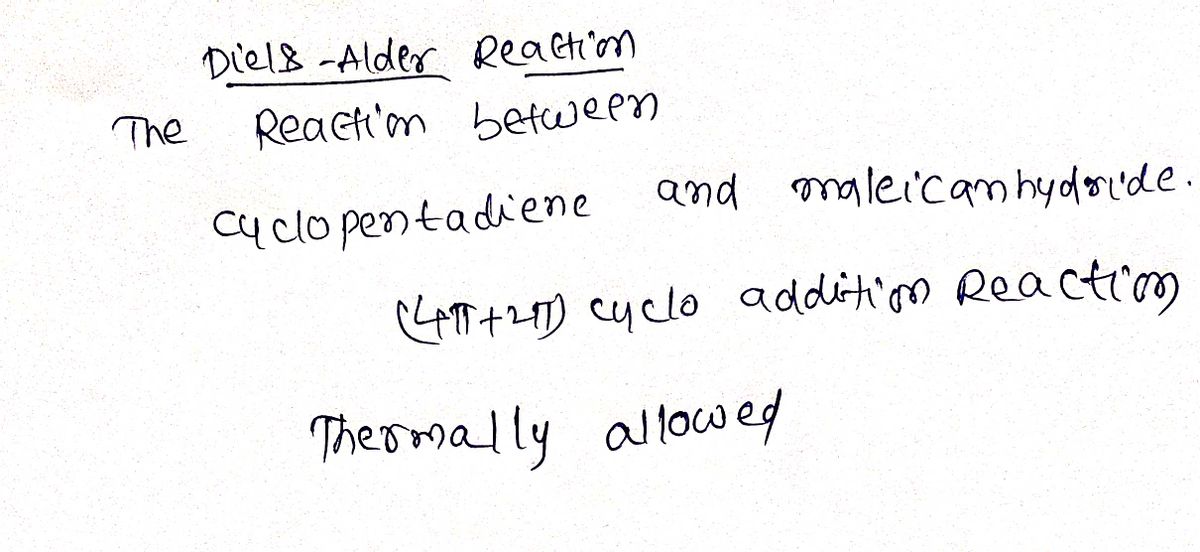 Diels-Alder Reaction
The Reaction between
cyclopentadiene and maleicanhydride.
(4π+2π) cyclo addition Reaction
Thermally allowed